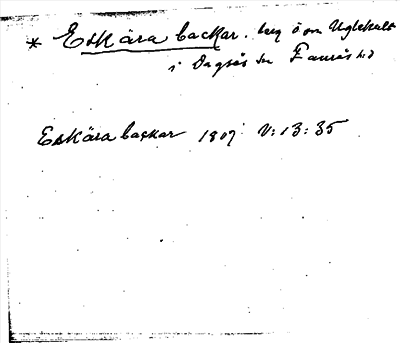 * Eskära backar. berg ö om Uglehult
i Dagsås sn Faurås hd
Eskära backar 1807 V:13:35